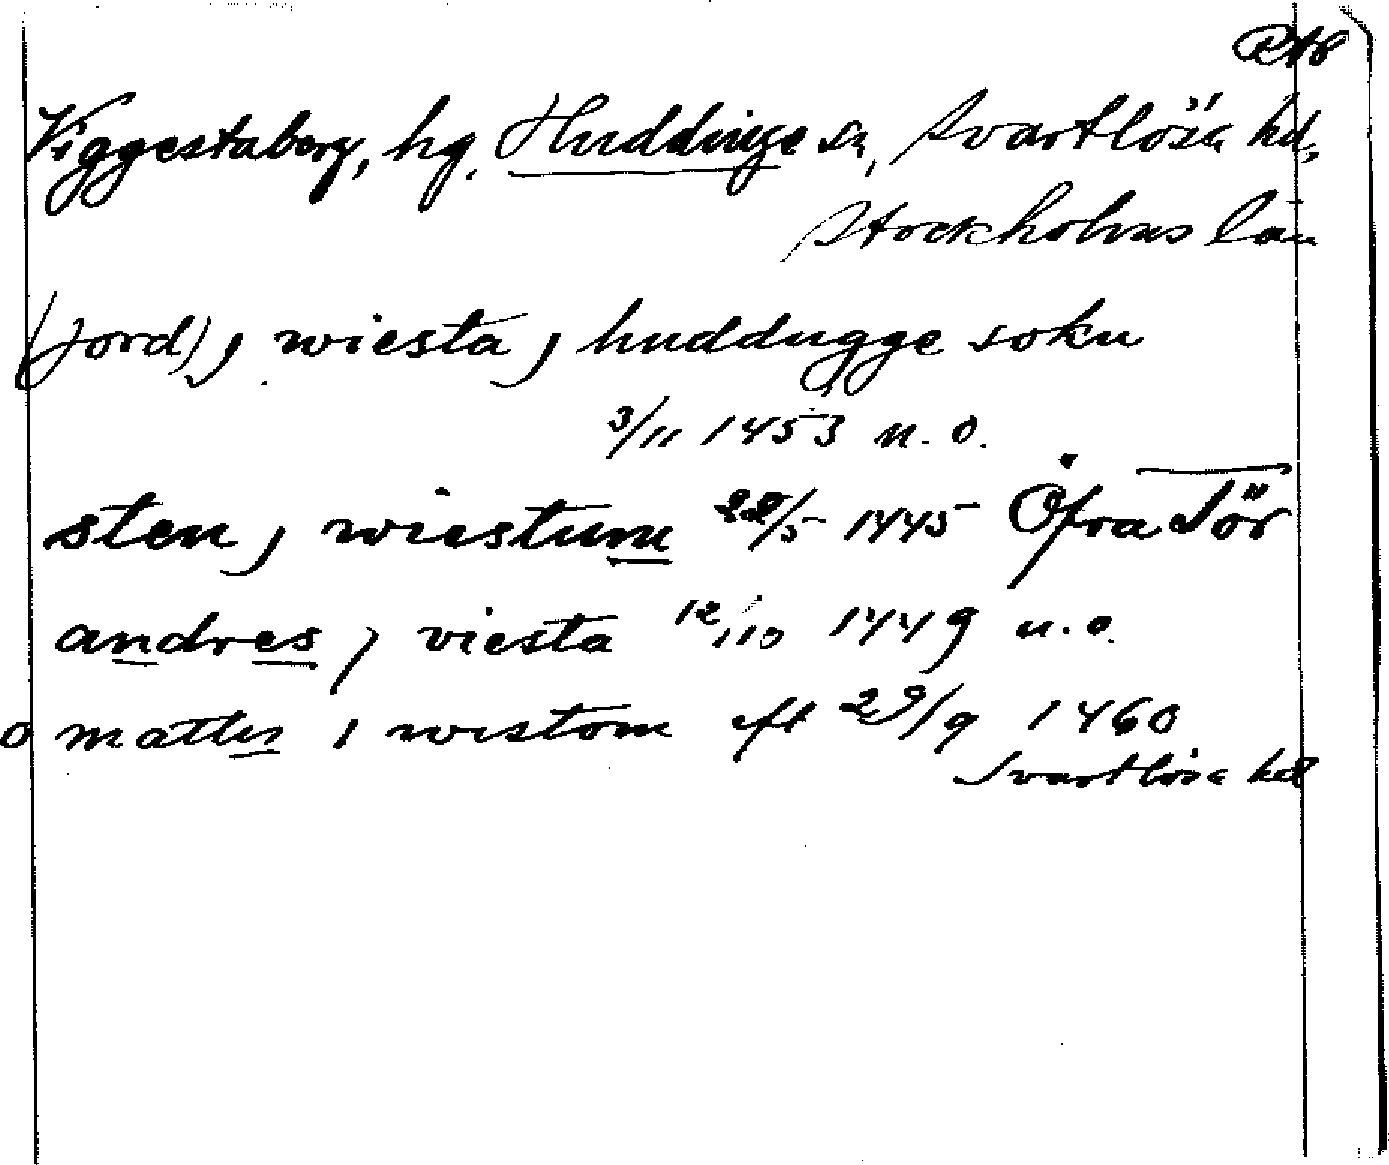 Viggestaberg, hg. Huddinge sn, Svartlösa hd,
Stockholms län
(jord) j wiesta j huddugge sokn
3/11 1453 n. o.
sten j wiestum 22/5 1445 Öfra Tör
andres j viesta 12/10 1449 n. o.
o mattis i wistom eft 29/9 1460
Svartlösa hd